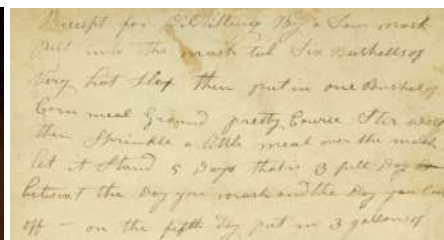 Receipt for Distilling By a Sour mash
Put into the mash tub Six Bushells of
Very hot Slop then put in one Bushel of
Corn meal Ground pretty Course Stir well
then Sprinkle a little meal over the mash
let it Stand 5 Days that is 3 full Days
betwixt the Day you mash and the Day you
off - on the fifth Day put in 3 gallons of